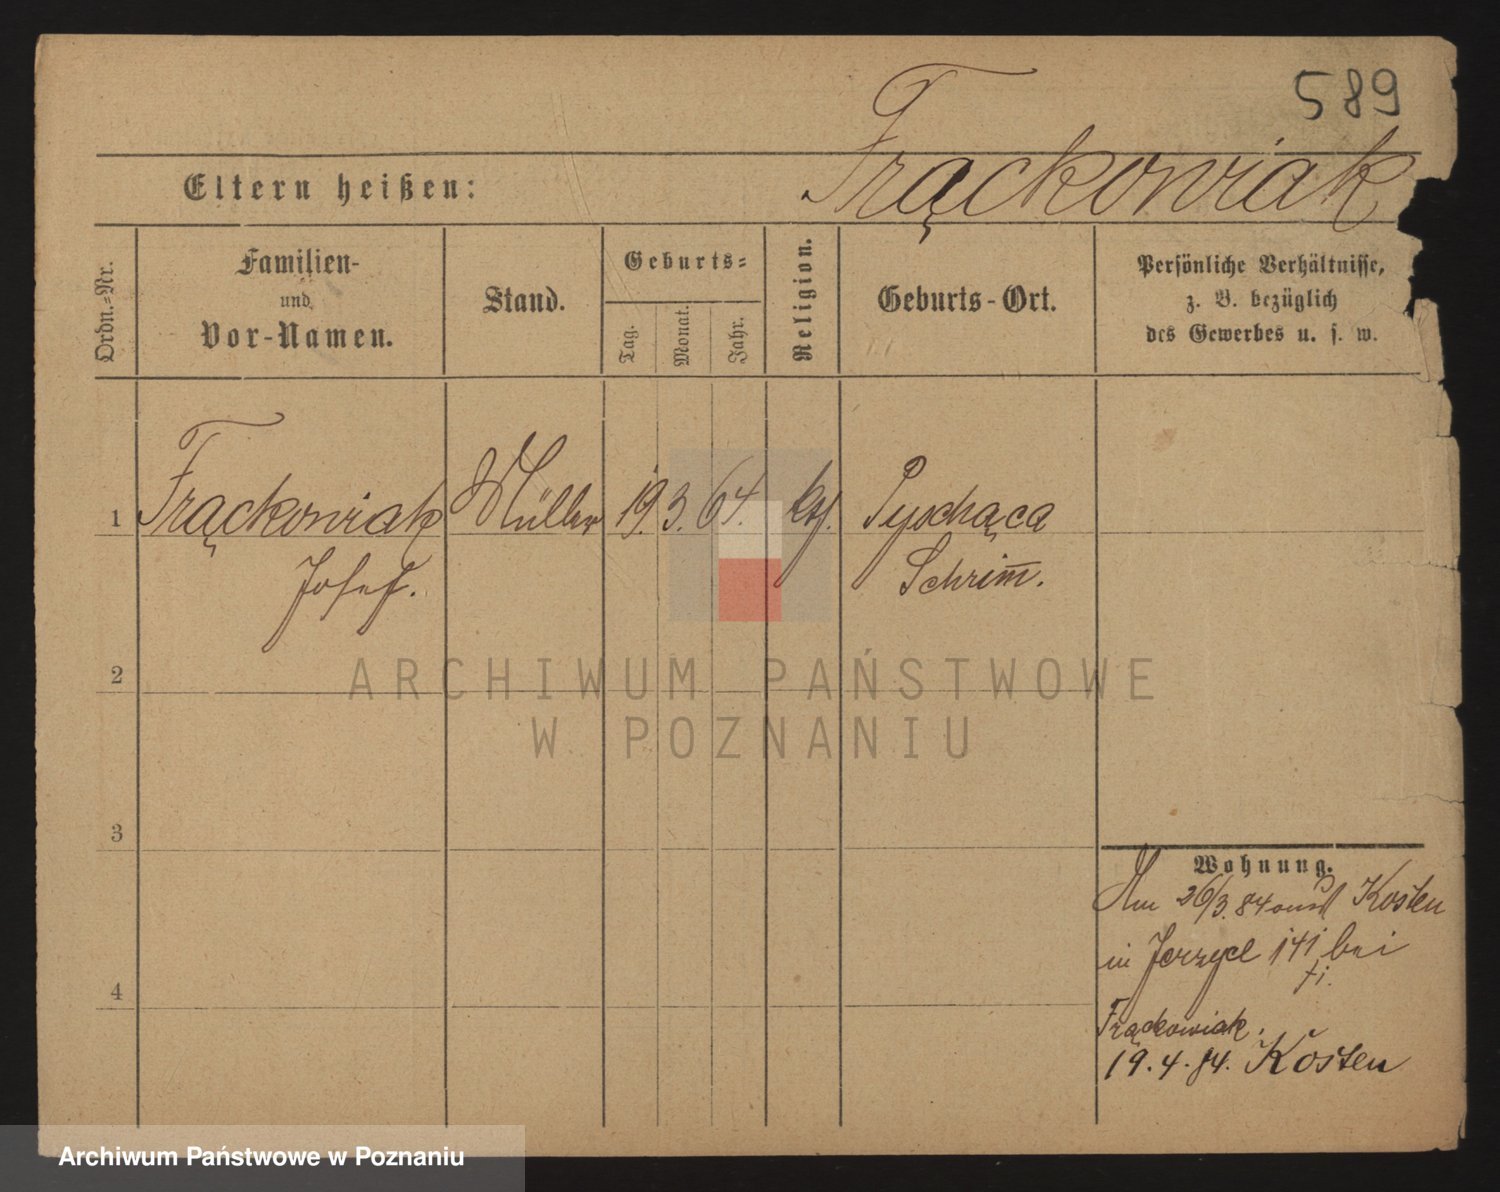 589
Frąckowiak
Eltern heißen:
Ordn.-Nr.
Familien-
und
Vor-Namen.
Stand.
Geburts-
Tag.
Monat.
Jahr.
Religion.
Geburts-Ort.
Persönliche Verhältnisse,
z. B. bezüglich
des Gewerbes u. s. w.
1 Frąckowiak Müller 19. 3. 64. kth. Pyschąca
Josef. Schrim̅.
2
3
4
ARCHIWUM PAŃSTWOWE
W POZNANIU
Wohnung.
Am 26/3. 84 Kosten
in Jerzyce 141 bei
Frąckowiak.
19. 4. 84. Kosten
Archiwum Państwowe w Poznaniu